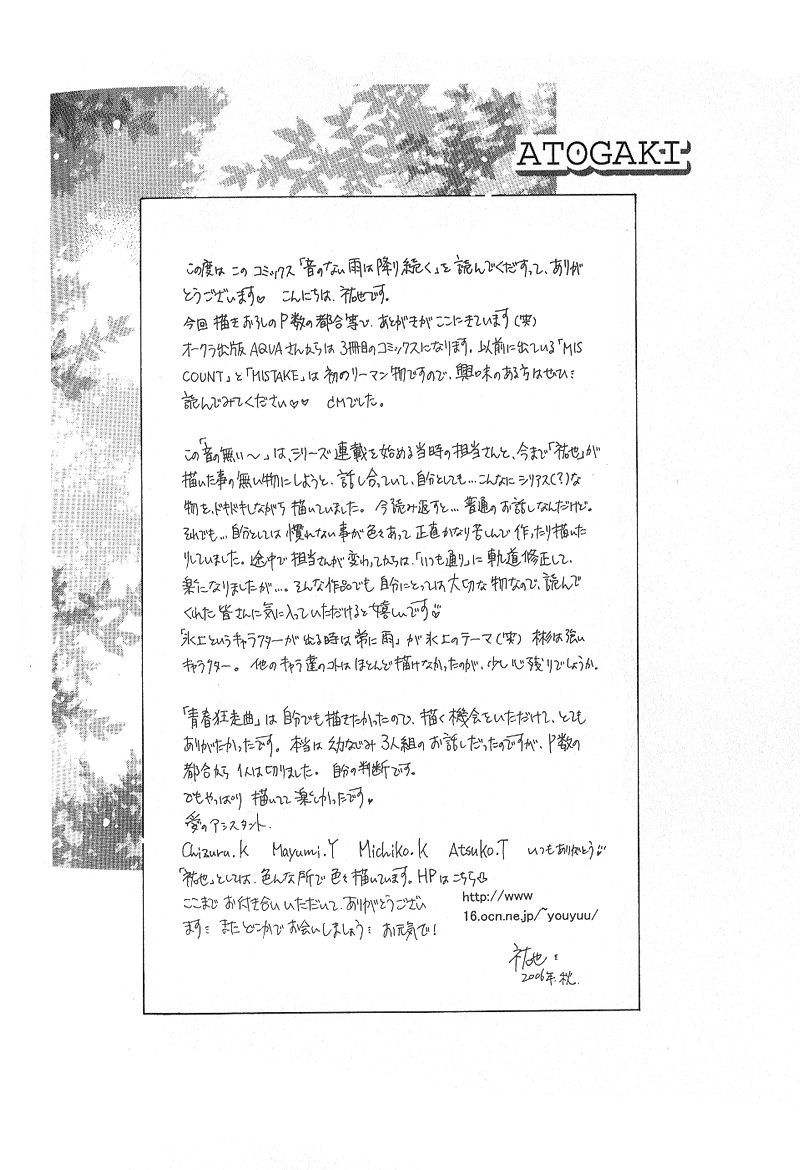 ATOGAKI
この度は このコミックス「音のない雨は降り続く」を読んでくださって、ありが
とうございます♡ こんにちは、祐也です。
今回 描きおろしのP数の都合等で、あとがきがここにきています(笑)
オークラ出版AQUAさんからは3冊目のコミックスになります。以前に出ている「MIS
COUNT」と「MISTAKE」は初のリーマン物ですので、興味のある方はぜひ
読んでみてください♡♡ CMでした。
この「音の無い〜」は、シリーズ連載を始める当時の担当さんと、今まで「祐也」が
描いた事の無い物にしようと、話し合っていて、自分としても…こんなにシリアス(?)な
物を、ドキドキしながら描いていました。今読み返すと…普通のお話しなんだけど。
それでも…自分としては慣れない事が色々あって正直かなり苦しんで作ったり描いた
りしていました。途中で担当さんが変わってからは、「いつも通り」に軌道修正して、
楽になりましたが…。そんな作品でも自分にとっては大切な物なので、読んで
くれた皆さんに気に入っていただけると嬉しいです♡
「氷上というキャラクターが出る時は常に雨」が氷上のテーマ(笑) 彬は強い
キャラクター。他のキャラ達のコトはほとんど描けなかったのが、少し心残りでしょうか。
「青春狂走曲」は自分でも描きたかったので、描く機会をいただけて、とても
ありがたかったです。本当は幼なじみ3人組のお話しだったのですが、P数の
都合から1人は切りました。自分の判断です。
でもやっぱり描いてて楽しかったです♥
愛のアシスタント
Chizuru.K Mayumi.Y Michiko.K Atsuko.T いつもありがとう♡
「祐也」としては、色んな所で色々描いています。HPはこちら⇩
http://www
16.ocn.ne.jp/~youyuu/
ここまでお付き合いいただいて、ありがとうござい
ます またどこかでお会いしましょう お元気で!
祐也
2006年.秋.